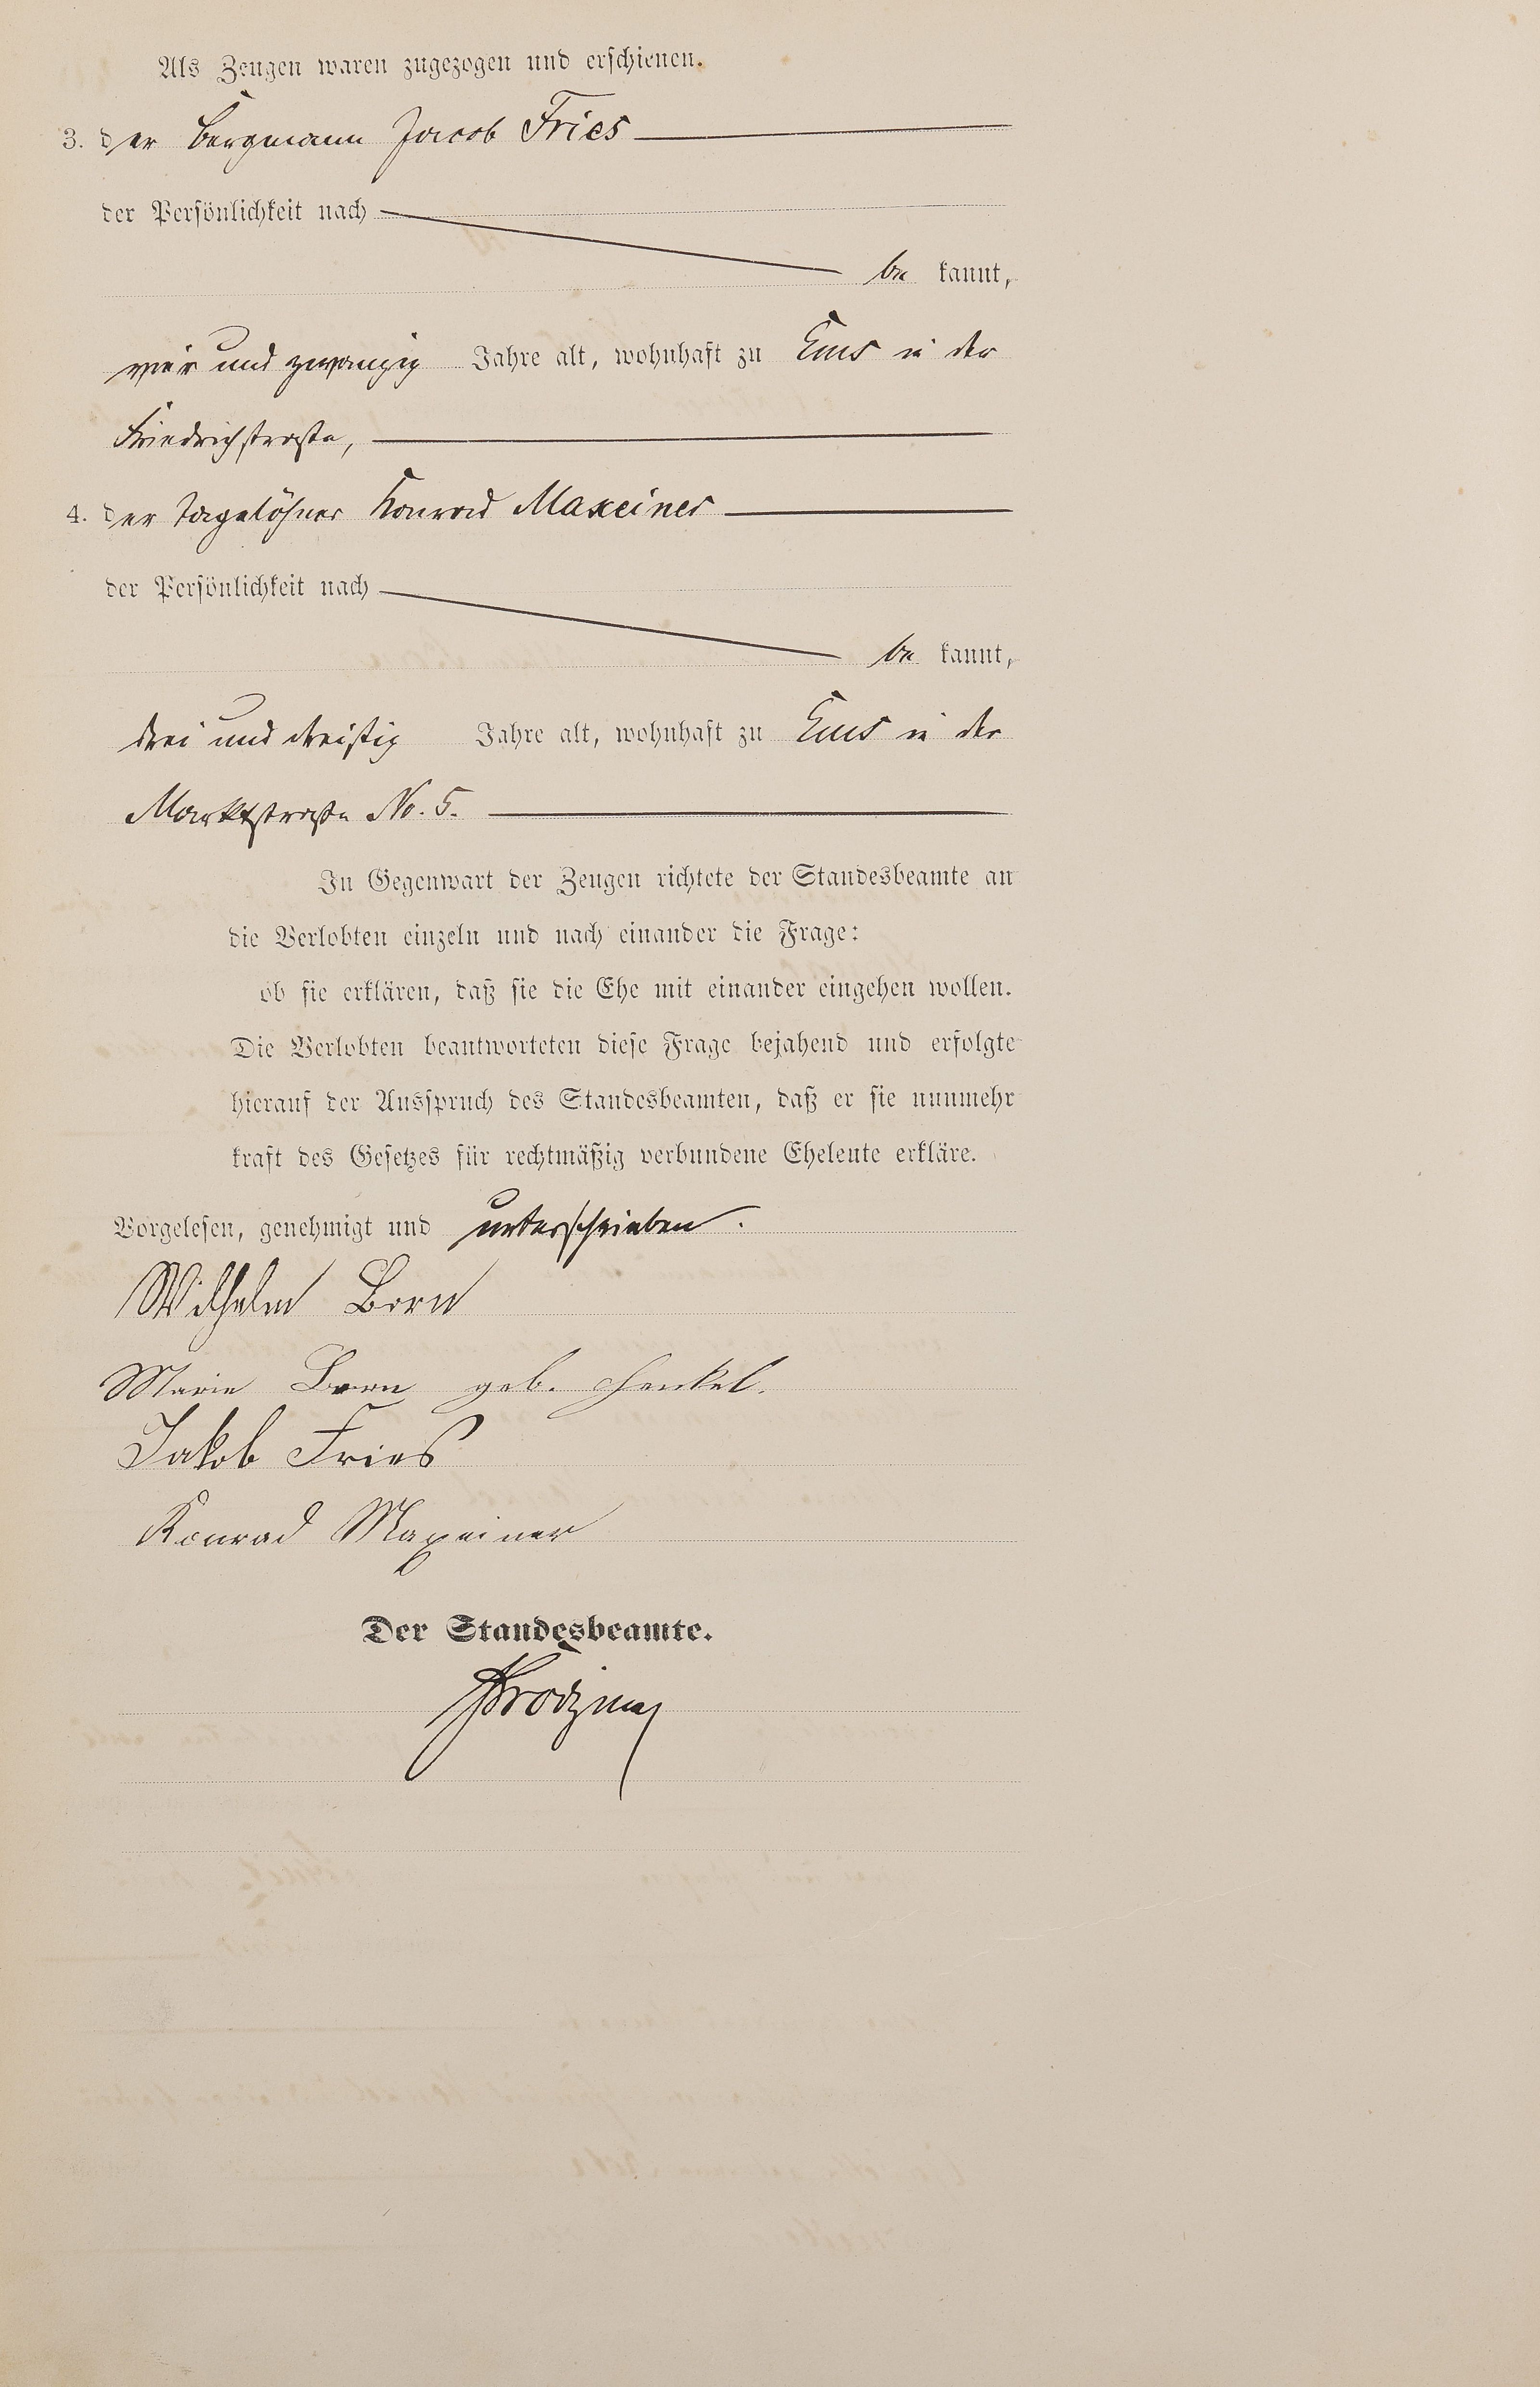 Als Zeugen waren zugezogen und erschienen.
3. der Bergmann Jacob Fries
der Persönlichkeit nach
be kannt,
vier und zwanzig Jahre alt, wohnhaft zu Ems in der
Friedrichstraße,
4. der Tagelöhner Konrad Maxeiner
der Persönlichkeit nach
be kannt,
drei und dreißig Jahre alt, wohnhaft zu Ems in der
Marktstraße No. 5.
In Gegenwart der Zeugen richtete der Standesbeamte an
die Verlobten einzeln und nach einander die Frage:
ob sie erklären, daß sie die Ehe mit einander eingehen wollen.
Die Verlobten beantworteten diese Frage bejahend und erfolgte
hierauf der Ausspruch des Standesbeamten, daß er sie nunmehr
kraft des Gesetzes für rechtmäßig verbundene Eheleute erkläre.
Vorgelesen, genehmigt und unterschrieben.
Wilhelm Born
Marie Born geb. Henkel.
Jakob Fries
Konrad Maxeiner
Der Standesbeamte.